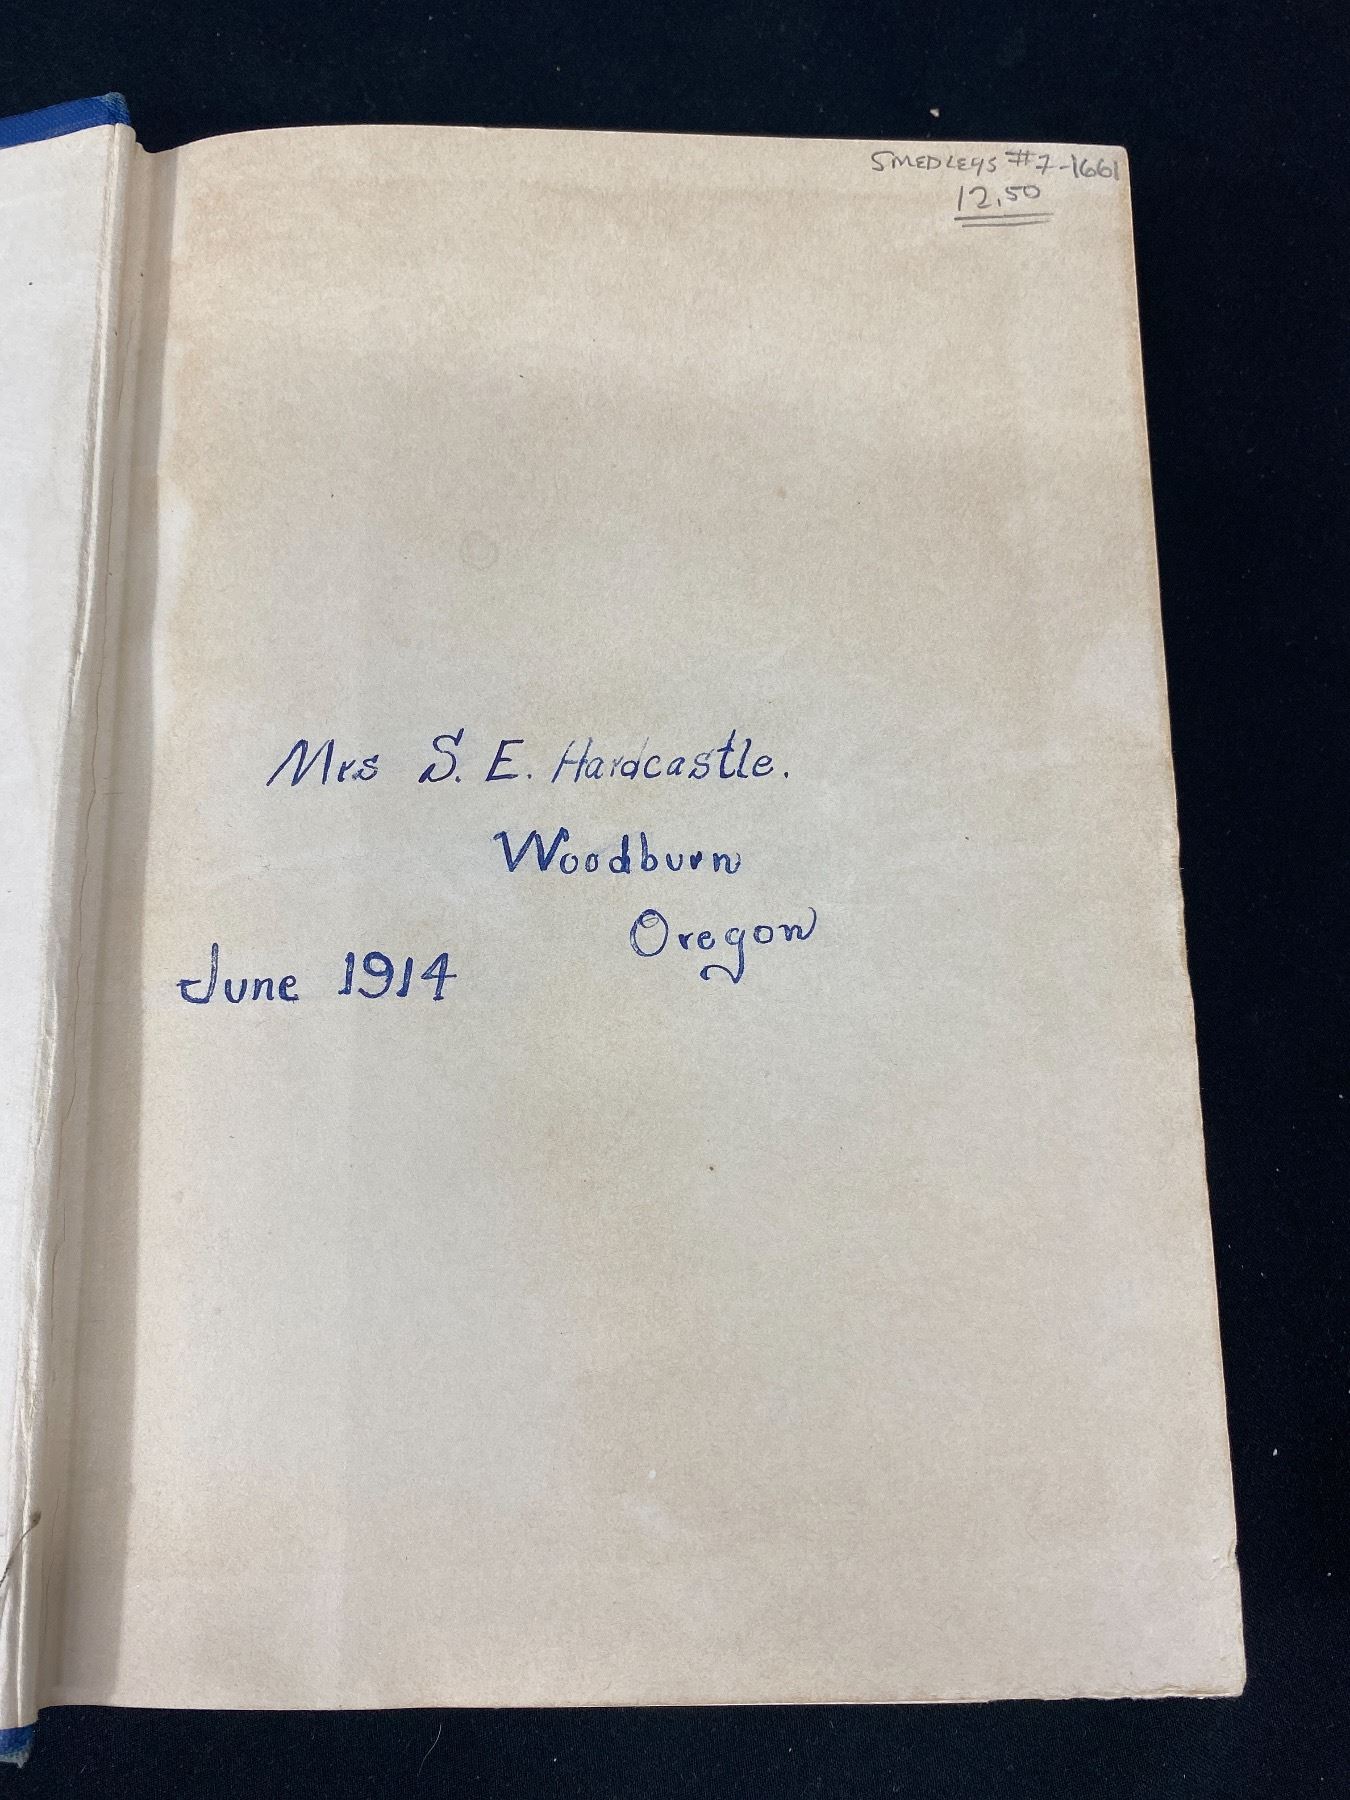 SMEDLEYS #7-1661
12.50
Mrs S. E. Hardcastle.
Woodburn
Oregon
June 1914